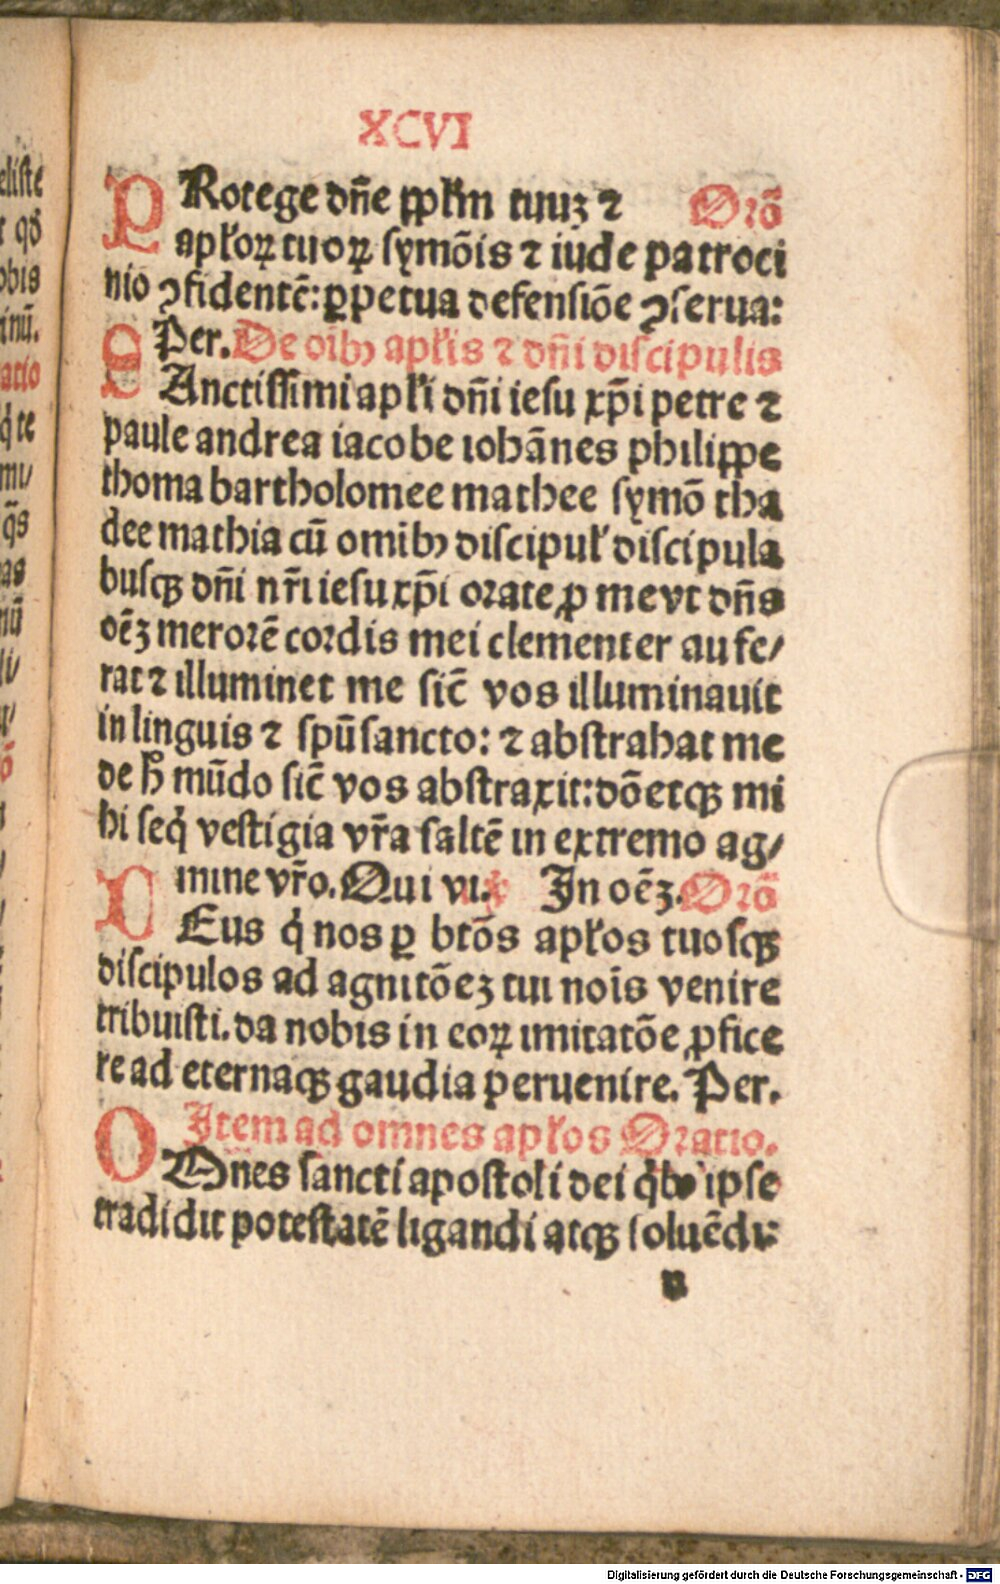 XCVI
PRotege dñe pp̄łm tuuꝫ ⁊ Orō
apłoꝝ tuoꝝ ſymōis ⁊ iude patroci
nio ꝯfidentē: ꝑpetua defenſiōe ꝯſerua:
Per. De oībꝰ apłis ⁊ dñi diſcipulis
SAnctiſſimi apłi dñi ieſu xp̄i petre ⁊
paule andrea iacobe iohānes philippe
thoma bartholomee mathee ſymō tha
dee mathia cū omibꝰ diſcipuł diſcipula
buſqꝫ dñi nr̄i ieſu xp̄i orate ꝓ me vt dñs
oēꝫ merorē cordis mei clementer aufe/
rat ⁊ illuminet me ſic̄ vos illuminauit
in linguis ⁊ ſpū ſancto: ⁊ abſtrahat me
de h̄ mūdo ſic̄ vos abſtraxit: dōetqꝫ mi
hi ſeq̄ veſtigia vr̄a ſaltē in extremo ag/
mine vr̄o. Qui vi. In oēꝫ. Orō
DEus q̄ nos ꝑ btōs apłos tuoſqꝫ
diſcipulos ad agnitōeꝫ tui noīs venire
tribuiſti. da nobis in eoꝝ imitatōe ꝓfice
re ad eternaqꝫ gaudia peruenire. Per.
Item ad omnes apłos Oratio.
OMnes ſancti apoſtoli dei q̄bꝰ ipſe
tradidit poteſtatē ligandi atqꝫ ſoluēdi:
n
eliſte
qđ
obis
inū.
atio
q̄ te
mi/
q̄s
as
nū
li/
ō
Digitalisierung gefördert durch die Deutsche Forschungsgemeinschaft - DFG